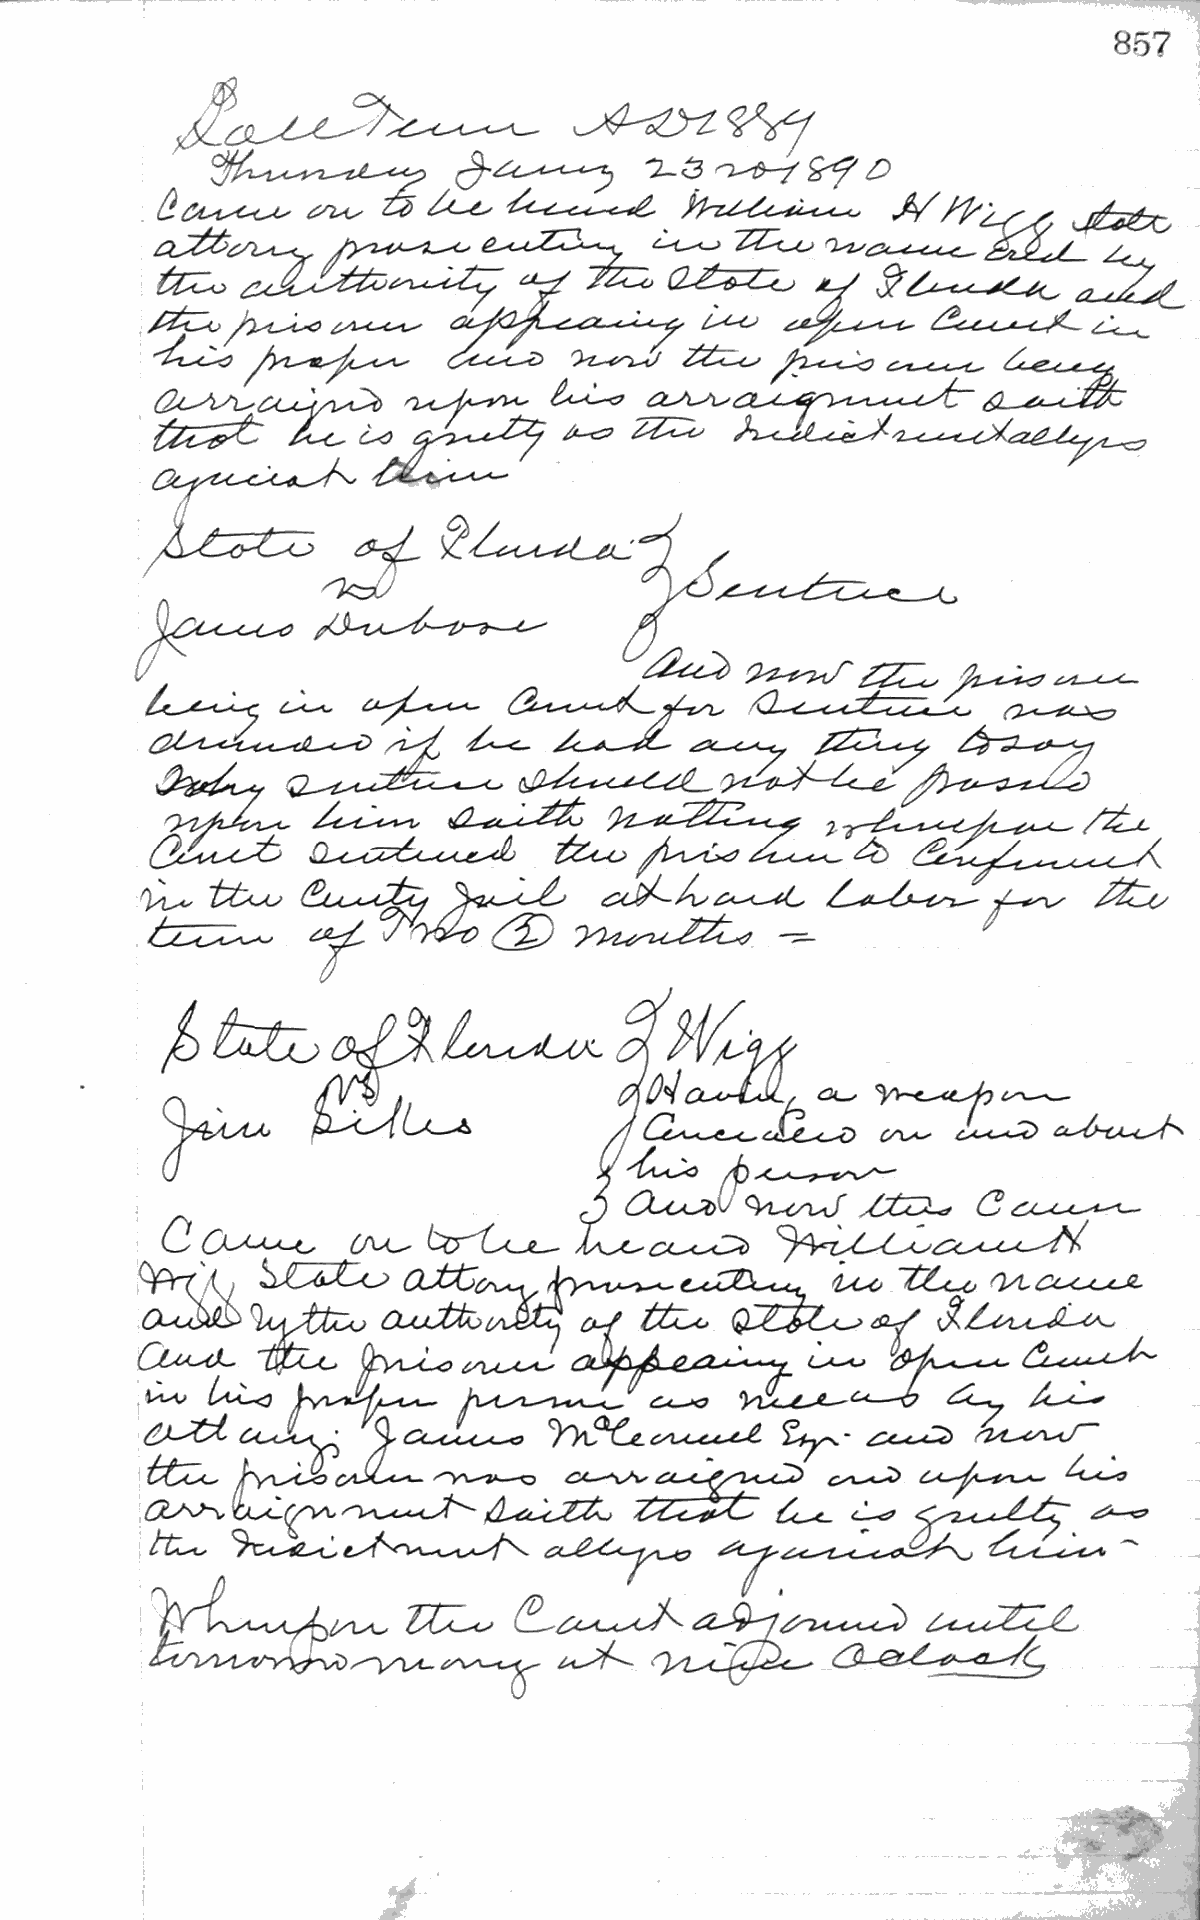 857
Fall Term AD 1889
Thursday Jany 23rd 1890
Came on to be heard William H Wigg State
attorny prosecuting in the name and by
the authority of the State of Florida and
the prisoner appearing in open Court in
his proper and now the prisoner being
arraigned upon his arraignment saith
that he is guilty as the Indictment alleges
against him
State of Florida
vs
James Dubose
Sentence
and now the prisoner
being in open Court for Sentence was
demanded if he had any thing to say
why sentence should not be passed
upon him saith nothing whereupon the
Court sentenced the prisoner to Confinment
in the County Jail at hard labor for the
term of Two (2) months =
State of Florida
vs
Jim Sikes
Wigg
Having a weapon
Concealed on and about
his person
and now this Cause
Came on to be heard William H
Wigg State attorny prosecuting in the name
and by the authority of the State of Florida
and the prisoner appearing in open Court
in his proper person as well as by his
attorny James McConnel Esq. and now
the prisoner was arraigned and upon his
arraignment saith that he is guilty as
the Indictment alleges against him -
Whereupon the Court adjourned until
tomorrow morng at nine Oclock